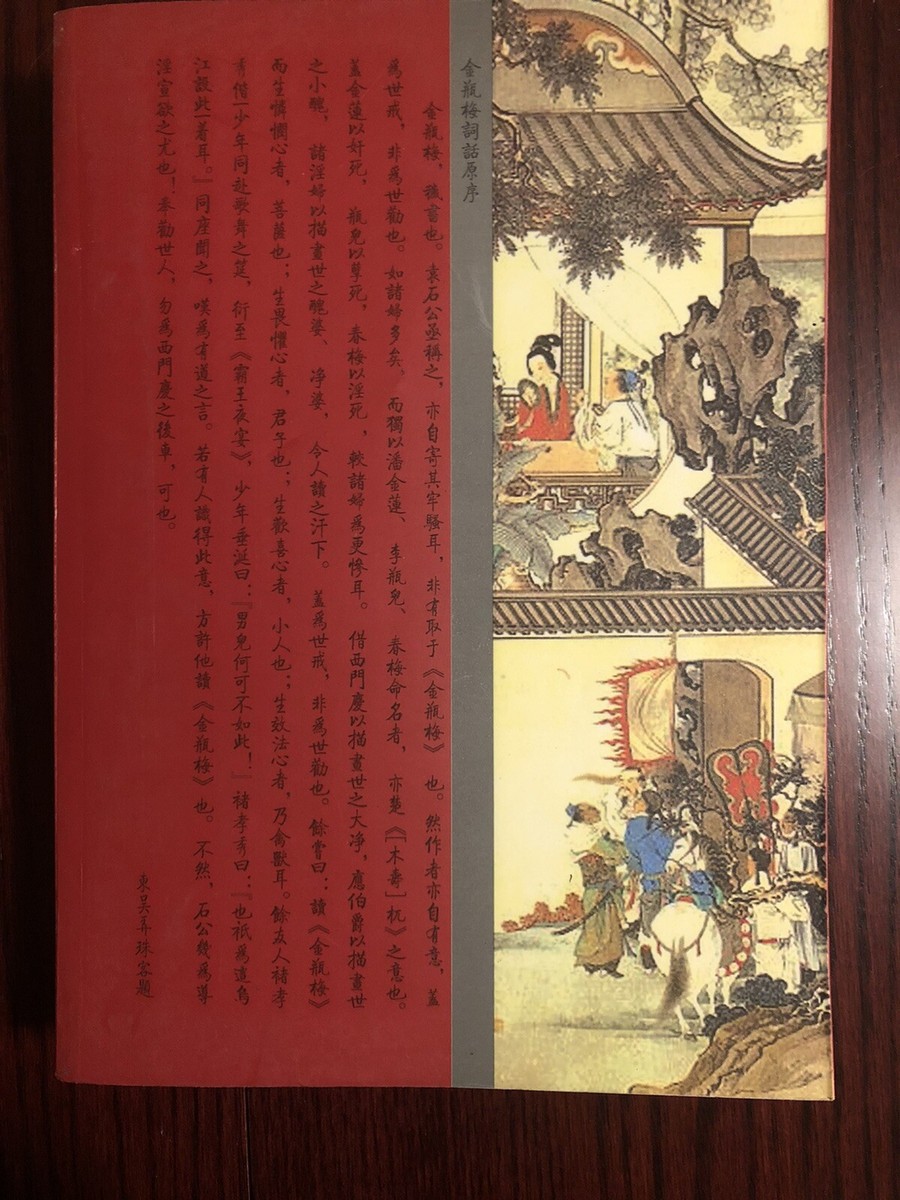 金瓶梅詞話原序
金瓶梅，穢書也。袁石公亟稱之，亦自寄其牢騷耳，非有取于《金瓶梅》也。然作者亦自有意，蓋
為世戒，非為世勸也。如諸婦多矣，而獨以潘金蓮、李瓶兒、春梅命名者，亦楚《［木壽］杌》之意也。
蓋金蓮以奸死，瓶兒以孽死，春梅以淫死，較諸婦為更慘耳。借西門慶以描畫世之大净，應伯爵以描畫世
之小醜，諸淫婦以描畫世之醜婆、净婆，令人讀之汗下。蓋為世戒，非為世勸也。餘嘗曰：讀《金瓶梅》
而生憐憫心者，菩薩也；生畏懼心者，君子也；生歡喜心者，小人也；生效法心者，乃禽獸耳。餘友人褚孝
秀偕一少年同赴歌舞之筵，衍至《霸王夜宴》，少年垂涎曰：『男兒何可不如此！』褚孝秀曰：『也衹為這烏
江設此一着耳。』同座聞之，嘆為有道之言。若有人識得此意，方許他讀《金瓶梅》也。不然，石公幾為導
淫宣欲之尤也！奉勸世人，勿為西門慶之後車，可也。
東吳弄珠客題